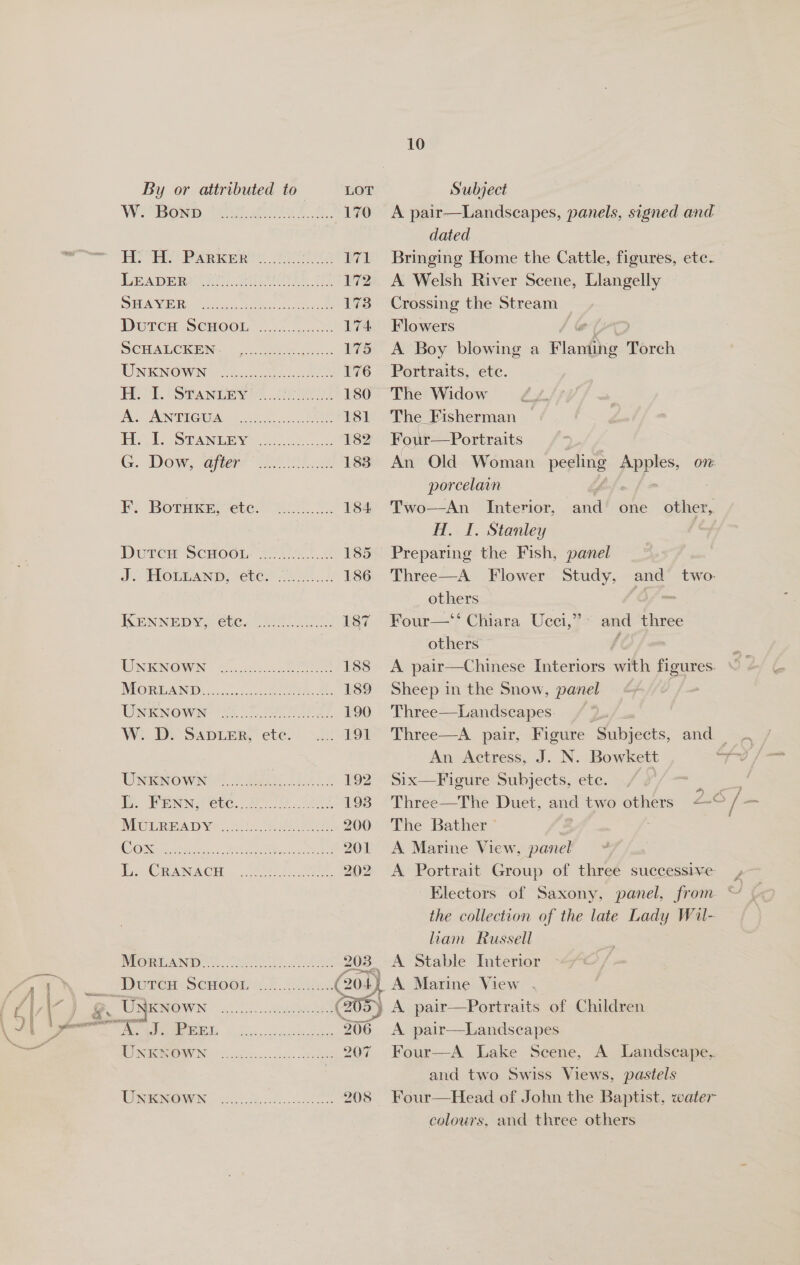 10
By or attributed to LOT Subject
W. BOND .......................... 170 A pair—Landscapes, panels, signed and
dated
H. H. PARKER ................ 171 Bringing Home the Cattle, figures, etc.
LEADER .......................... 172 A Welsh River Scene, Llangelly
SHAYER .......................... 173 Crossing the Stream
DUTCH SCHOOL .............. 174 Flowers
SCHALCKEN .................. 175 A Boy blowing a Flaming Torch
UNKNOWN ...................... 176 Portraits, etc.
H. I. STANLEY ................ 180 The Widow
A. ANTIGUA .................. 181 The Fisherman
H. I. STANLEY ................ 182 Four—Portraits
G. DOW, after ................ 183 An Old Woman peeling Apples, on
porcelain
F. BOTHKE, etc. ............ 184 Two—An Interior, and one other,
H. I. Stanley
DUTCH SCHOOL .............. 185 Preparing the Fish, panel
J. HOLLAND, etc. ............ 186 Three—A Flower Study, and two
others
KENNEDY, etc. .............. 187 Four—“ Chiara Ucci,” and three
others
UNKNOWN ...................... 188 A pair—Chinese Interiors with figures.
MORLAND ........................ 189 Sheep in the Snow, panel
UNKNOWN ...................... 190 Three—Landscapes
W. D. SADLER, etc. .... 191 Three—A pair, Figure Subjects, and
An Actress, J. N. Bowkett
UNKNOWN ...................... 192 Six—Figure Subjects, etc.
L. FENN, etc. .................. 193 Three—The Duet, and two others
MULREADY .................... 200 The Bather
COX ................................ 201 A Marine View, panel
L. CRANACH .................. 202 A Portrait Group of three successive
Electors of Saxony, panel, from
the collection of the late Lady Wil-
liam Russell
MORLAND ........................ 203 A Stable Interior
DUTCH SCHOOL .............. 204 A Marine View
UNKNOWN ...................... 205 A pair—Portraits of Children
A. J. PEEL .................... 206 A pair—Landscapes
UNKNOWN ...................... 207 Four—A Lake Scene, A Landscape,
and two Swiss Views, pastels
UNKNOWN ...................... 208 Four—Head of John the Baptist, water
colours, and three others